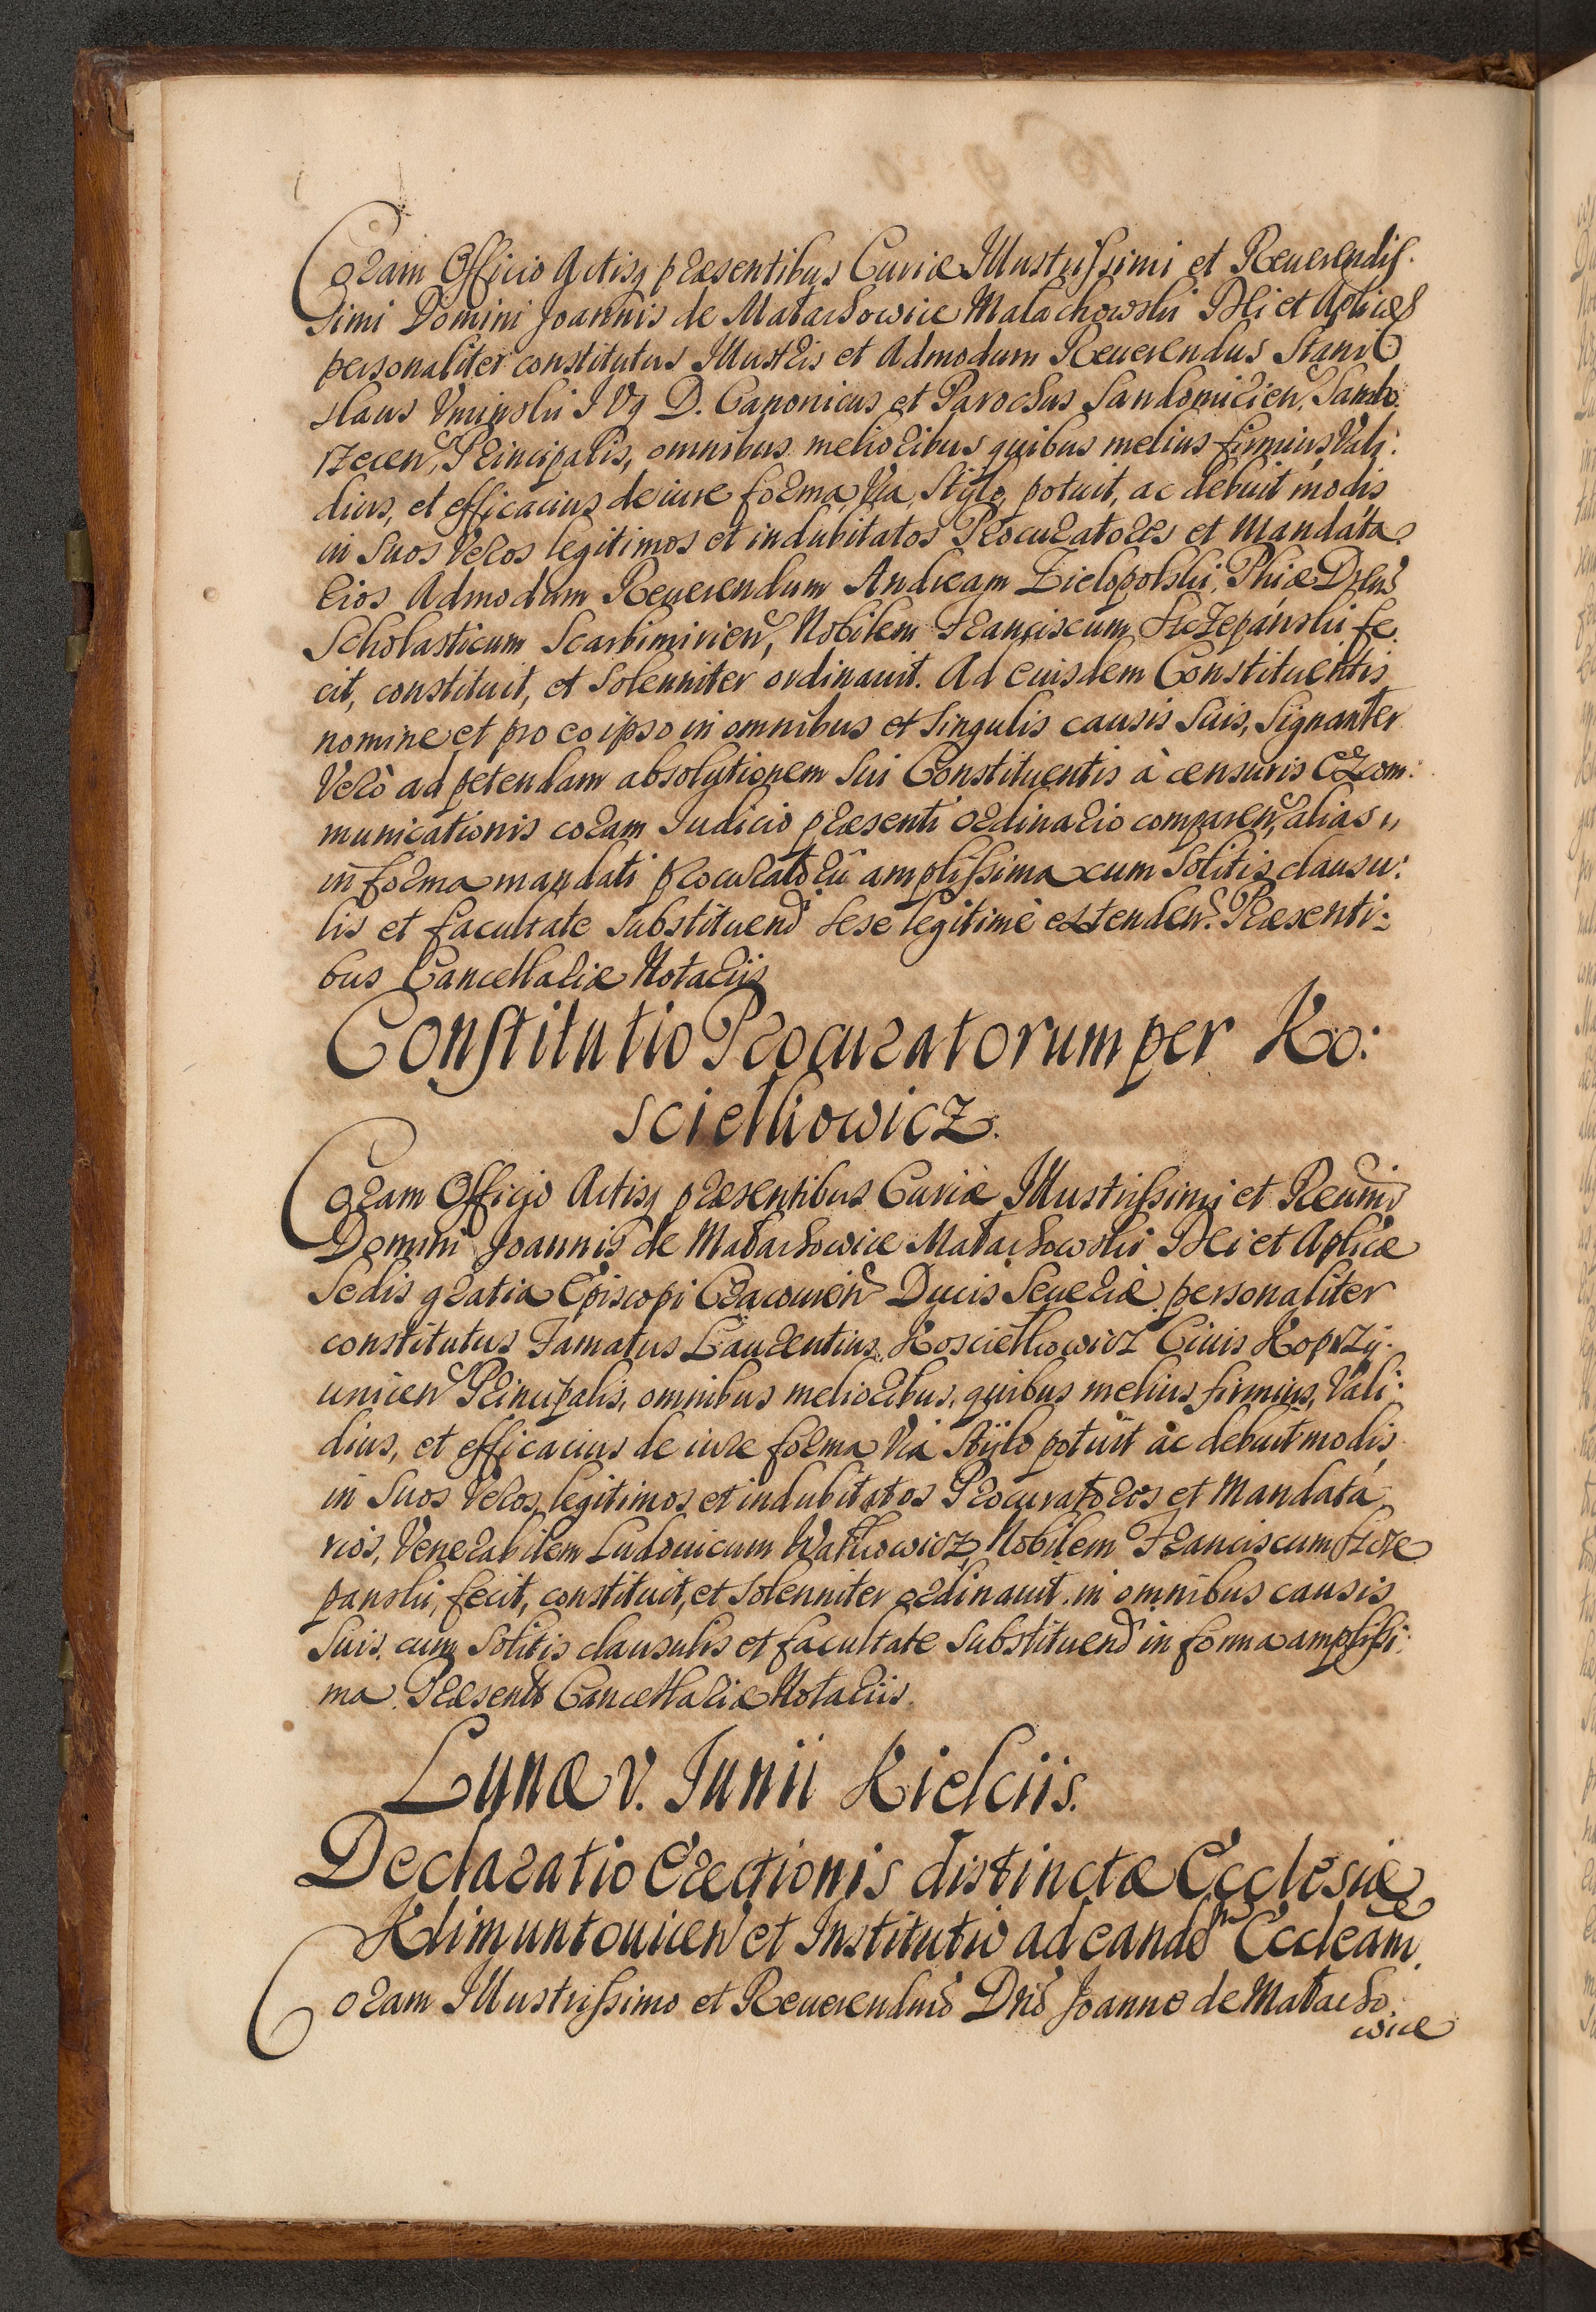 Coram Officio Actisq praesentibus Curiae Illustrissimi et Reuerendis.
simi Domini Joannis de Małachowice Małachowski Dei et Aplicae
personaliter constitutus Illustris et Admodum Reuerendus Stani
slaus Vminski I Vq D. Canonicus et Parochus Sandomirien, Sando
rzecen, Principalis, omnibus melioribus quibus melius firmius Vali:
dius, et efficacius de iure forma, Via, Stylo, potuit, ac debuit modis
in Suos Veros legitimos et indubitatos Procuratores et Mandata
rios Admodum Reuerendum Andream Zielopolski, Phiae Dren
Scholasticum Scarbimirien, Nobilem Franciscum Szczepánski fe.
cit, constituit, et Solenniter ordinauit. Ad Euisdem Constituentis
nomine et pro eo ipso in omnibus et Singulis causis Suis, Signanter
Verò ad petendam absolutionem Sui Constituentis à censuris Excom:
municationis coram Iudicio praesenti ordinario comparen, alias
in forma mandati procuratorii amplissima cum Solitis clausu:
lis et facultate Substituend Sese legitime extenden. Praesenti:
bus Cancellariae Notariis
Constitutio Procuratorum per Ko:
sciełkowicz.
Coram Officio Actisq praesentibus Curiae Illustrissimi et Reumi
Domini Joannis de Małachowice Małachowski Dei et Aplicae
Sedis gratia Episcopi Cracouien Ducis Seueriae personaliter
constitutus Famatus Laurentius Kosciełkowicz Ciuis Koprzy:
unicen Principalis, omnibus melioribus, quibus melius firmius, Vali:
dius, et efficacius de iure forma Via Stylo potuit ac debuit modis
in Suos Veros, legitimos et indubitatos Procuratores et Mandatá
rios, Venerabilem Ludouicum Wałkowicz, Nobilem Franciscum Szcze
panski, fecit, constituit, et Solenniter ordinauit. in omnibus causis
Suis. cum Solitis clausulis et facultate Substituend in forma amplissi:
ma. Praesent Cancellariae Notariis.
Lunae V. Junii Kielciis.
Declaratio Erectionis distinctae Ecclesiae
Klimuntouicen et Institutio ad eandem Eccleam.
Coram Illustrissimo et Reuerendmo Dno Joanne de Małacho
wice